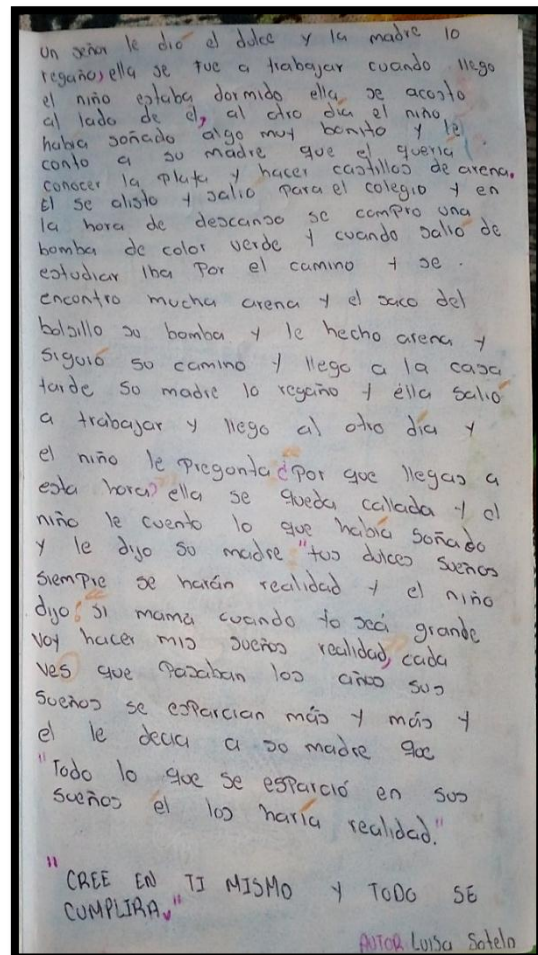 Un señor le dió el dulce y la madre lo
regaño, ella se fue a trabajar cuando llego
el niño estaba dormido ella se acosto
al lado de el, al otro día el niño
habia soñado algo muy bonito y le
conto a su madre que el queria
conocer la plata y hacer castillos de arena.
El se alisto y salio para el colegio y en
la hora de descanso se compro una
bomba de color verde y cuando salio de
estudiar iba por el camino y se
encontro mucha arena y el saco del
bolsillo su bomba y le hecho arena y
siguió su camino y llego a la casa
tarde su madre lo regaño y élla salió
a trabajar y llego al otro día y
el niño le pregunta ¿Por que llegas a
esta hora? ella se queda callada y el
niño le cuento lo que había soñado
y le dijo su madre "tus dulces sueños
siempre se harán realidad y el niño
dijo: si mama cuando yo seá grande
voy hacer mis sueños realidad, cada
ves que pasaban los años sus
sueños se esparcian más y más y
el le decia a su madre que
"Todo lo que se esparció en sus
sueños él los haría realidad."
"CREE EN TI MISMO Y TODO SE
CUMPLIRA."
AUTOR Luisa Sotelo